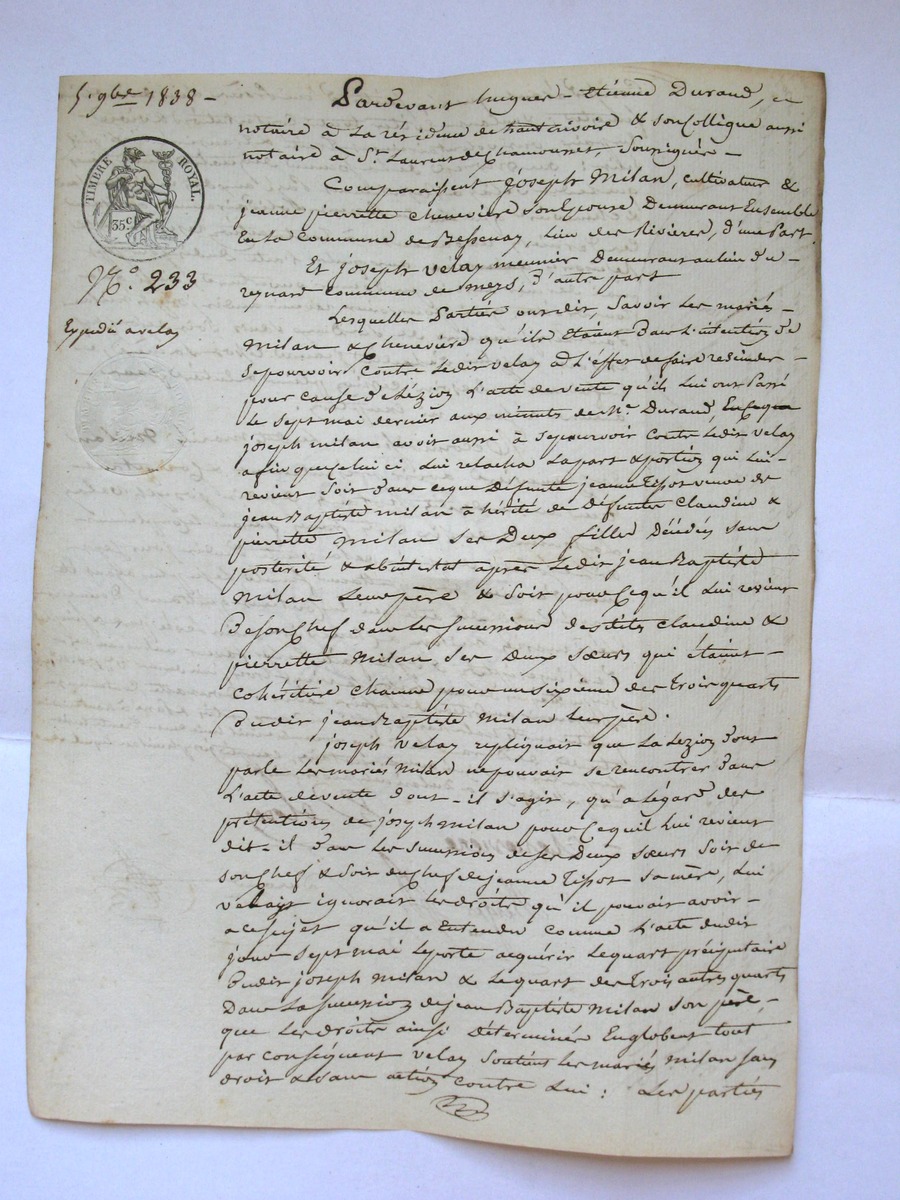 5. 9bre 1838 -
TIMBRE ROYAL.
35c
N.o 233
Expédié a velay
Pardevant hugues - Etiénne Durand,
notaire à la résidence de hautrivoire & son Collègue aussi
notaire à St. Laurent de Chamousset, soussignés -
Comparaissent joseph Milan, cultivateur &
jeanne pierrette cheneviere son Epouse Demeurant Ensemble
En la Commune de Bessenay, lieu des Rivières, d'une Part.
Et joseph velay meunier Demeurant au lieu du
regnard commune de meys, d'autre part
Lesquelles Parties ont dit, savoir les mariés -
Milan & cheneviere qu'ils Etaient Dans l'intention de
se pourvoir Contre Ledit velay à L'effet de faire rescinder -
pour cause de Lézion L'acte de vente qu'ils Lui ont Passé
Le sept mai dernier aux minutes de Me. Durand,
joseph milan avoit aussi à se pourvoir Contre Ledit velay
afin que Celui ci Lui relacha La part & portion qui Lui -
revient Soit dans ce que Défunte jeanne Tissot veuve de
jean Baptiste milan à hérité de Défuntes Claudine &
pierrette milan ses Deux filles Décédées sans
posterité & ab intestat après Ledit jean Baptiste
milan Leur père & Soit pour Ce qu'il Lui revient
De son Chef dans les successions desdites Claudine &
pierrette Milan ses Deux sœurs qui étaient -
cohéritière chacune pour un sixième des Trois quarts
Dudit jean Baptiste Milan leur père.
joseph velay repliquait que La Lezion dont
parle Les mariés Milan ne pouvait se rencontrer dans
L'acte de vente dont - il s'agit, qu'a l'égard des
prétentions de joseph milan pour Ce qu'il Lui revient
dit - il dans Les successions de ses Deux sœurs Soit de
son Chef & Soit du Chef de jeanne Tissot sa mère, Lui
velay ignorait les droits qu'il pouvait avoir -
a ce sujet qu'il a Entendu Comme L'acte dudit
jour sept mai Le porte acquérir Le quart préciputaire
Dudit joseph Milan & Le quart des Trois autres quarts
Dans La succession de jean Baptiste Milan son père, -
que Les droits ainsi déterminés Englobent tout
par conséquent velay soutient les mariés Milan sans
droit & sans action contre Lui : Les parties